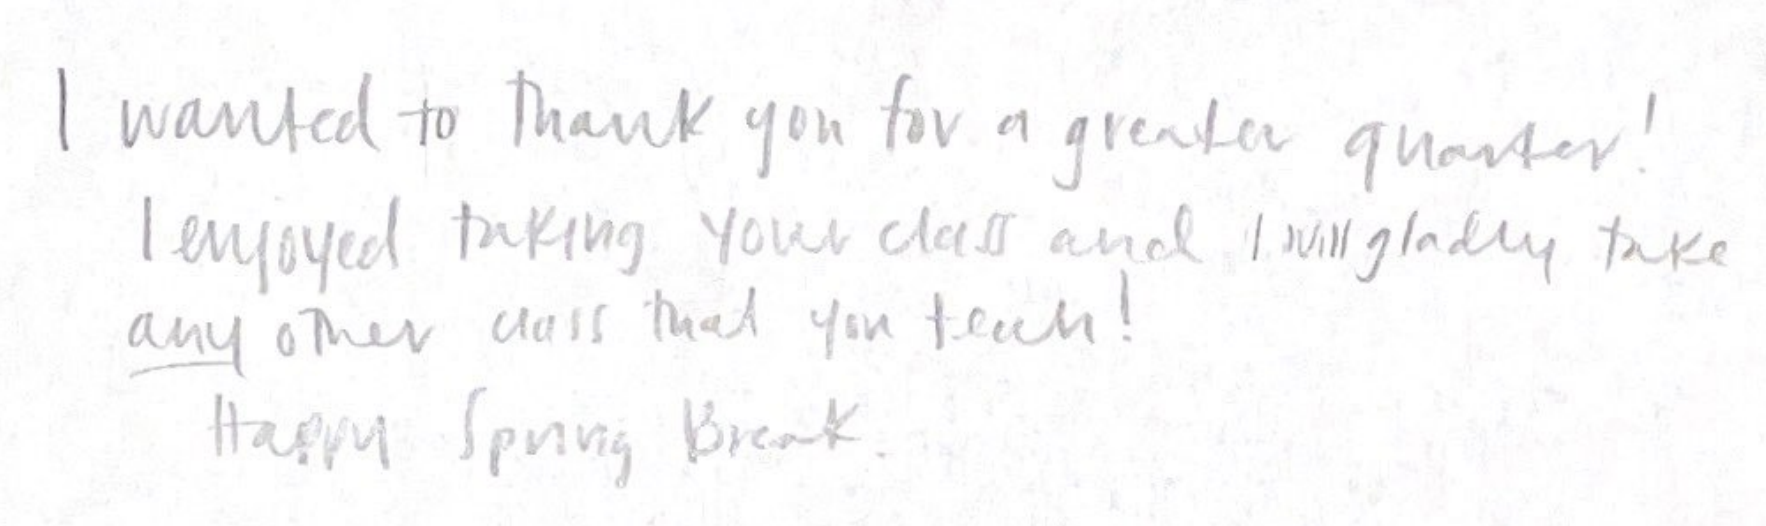 I wanted to thank you for a greater quarter!
I enjoyed taking your class and I will gladly take
any other class that you teach!
Happy Spring Break.